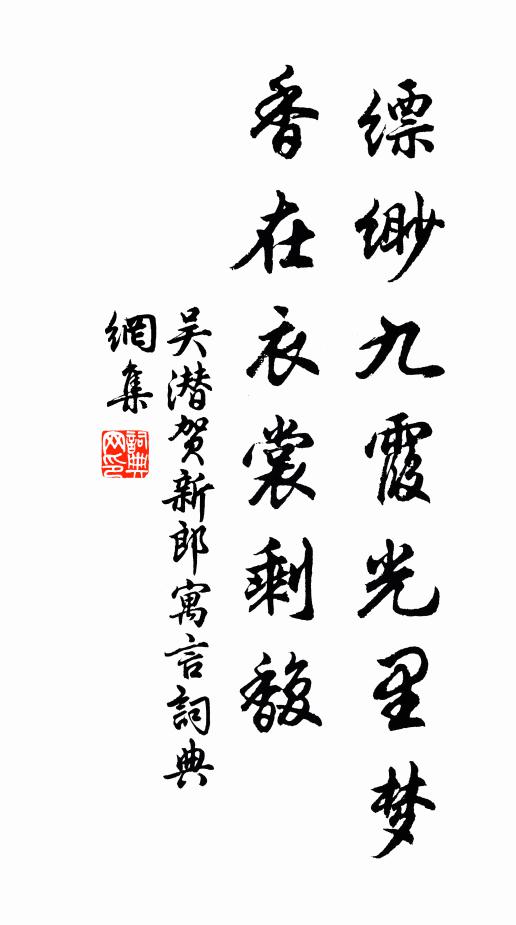 缥缈九霞光里梦
香在衣裳剩馥
吴潜贺新郎寓言詞典
網集
詞典网印